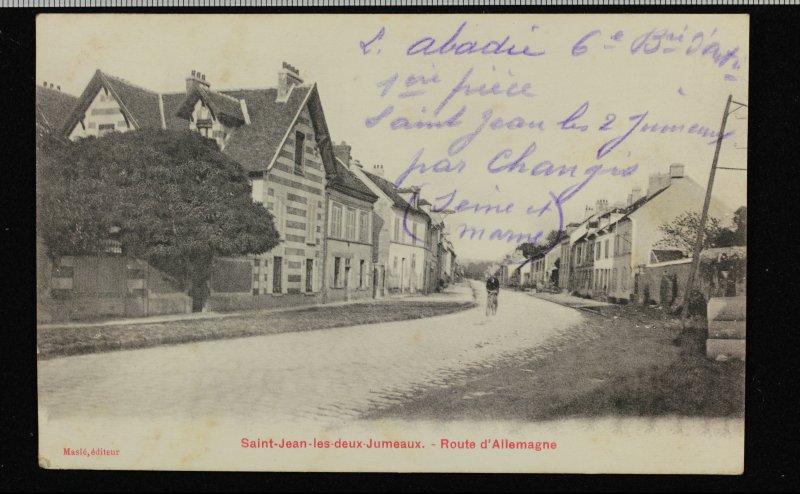 L. abadie 6e Bri d'Art
1ere pièce
Saint Jean les 2 Jumeaux
par Changis
(Seine et
marne)
Saint-Jean-les-deux-Jumeaux. - Route d'Allemagne
Maslé, éditeur